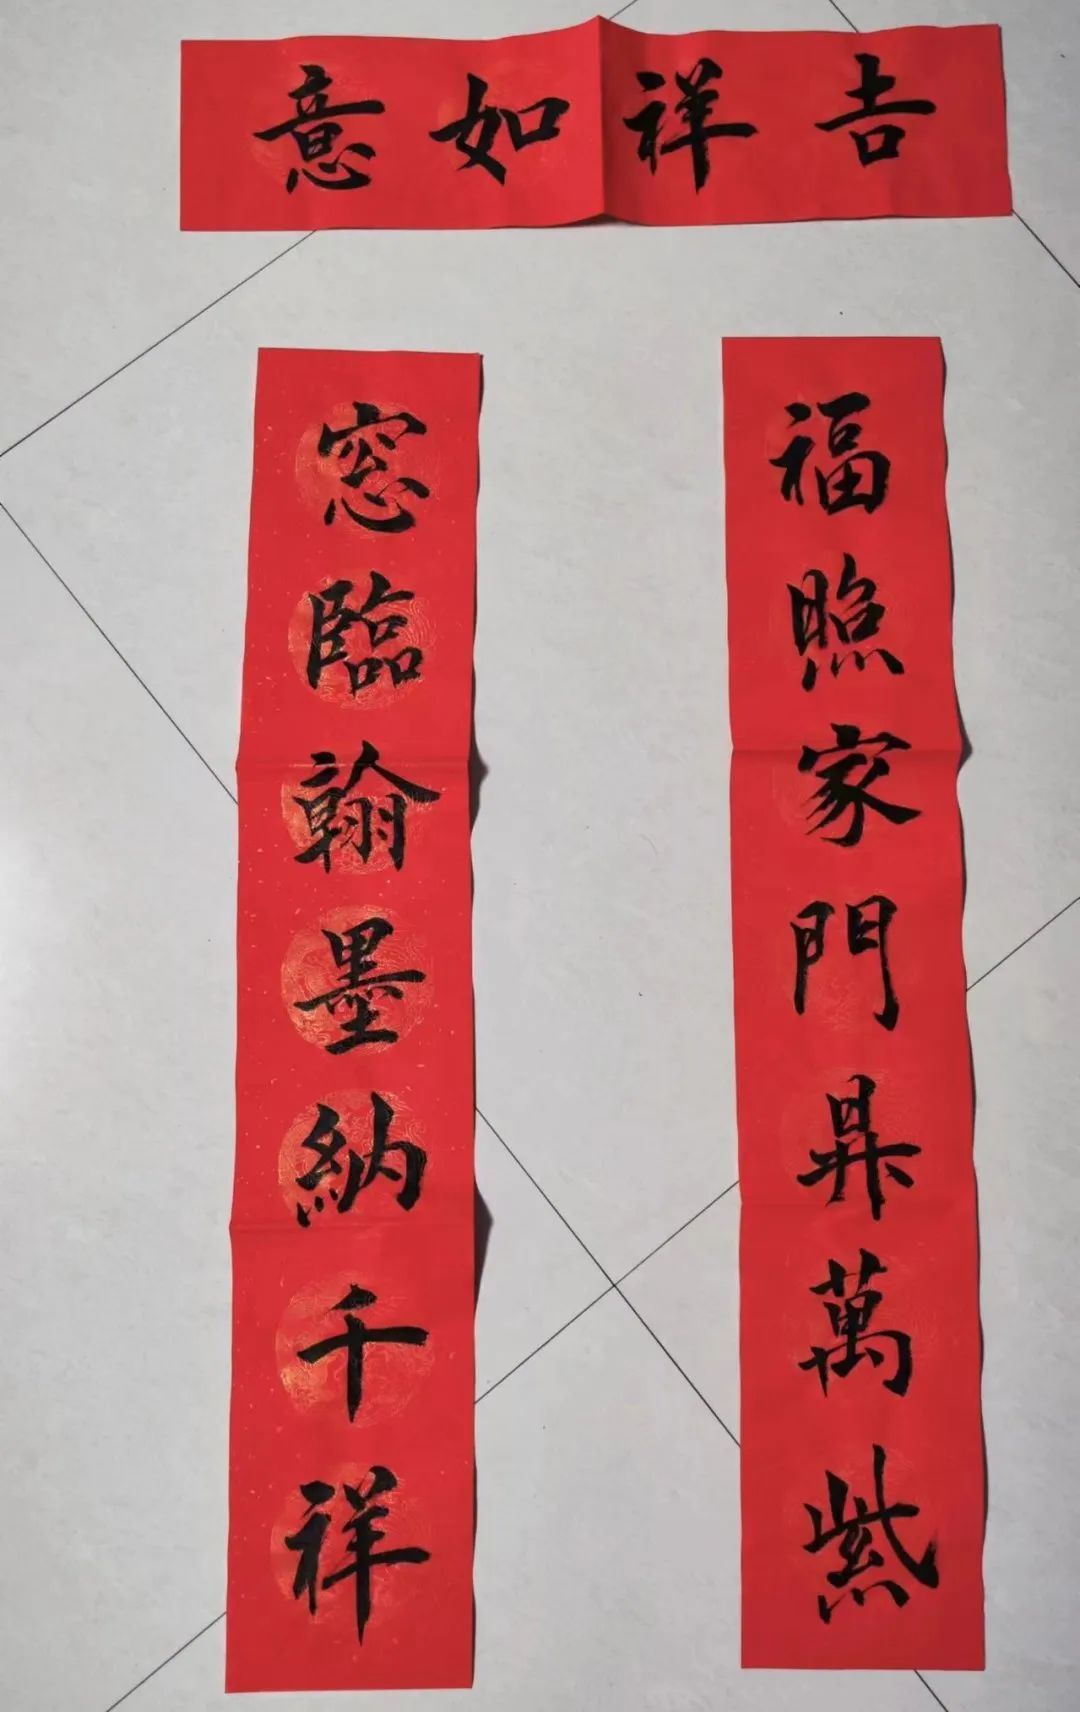 吉祥如意
福照家門昇萬紫
窓臨翰墨納千祥